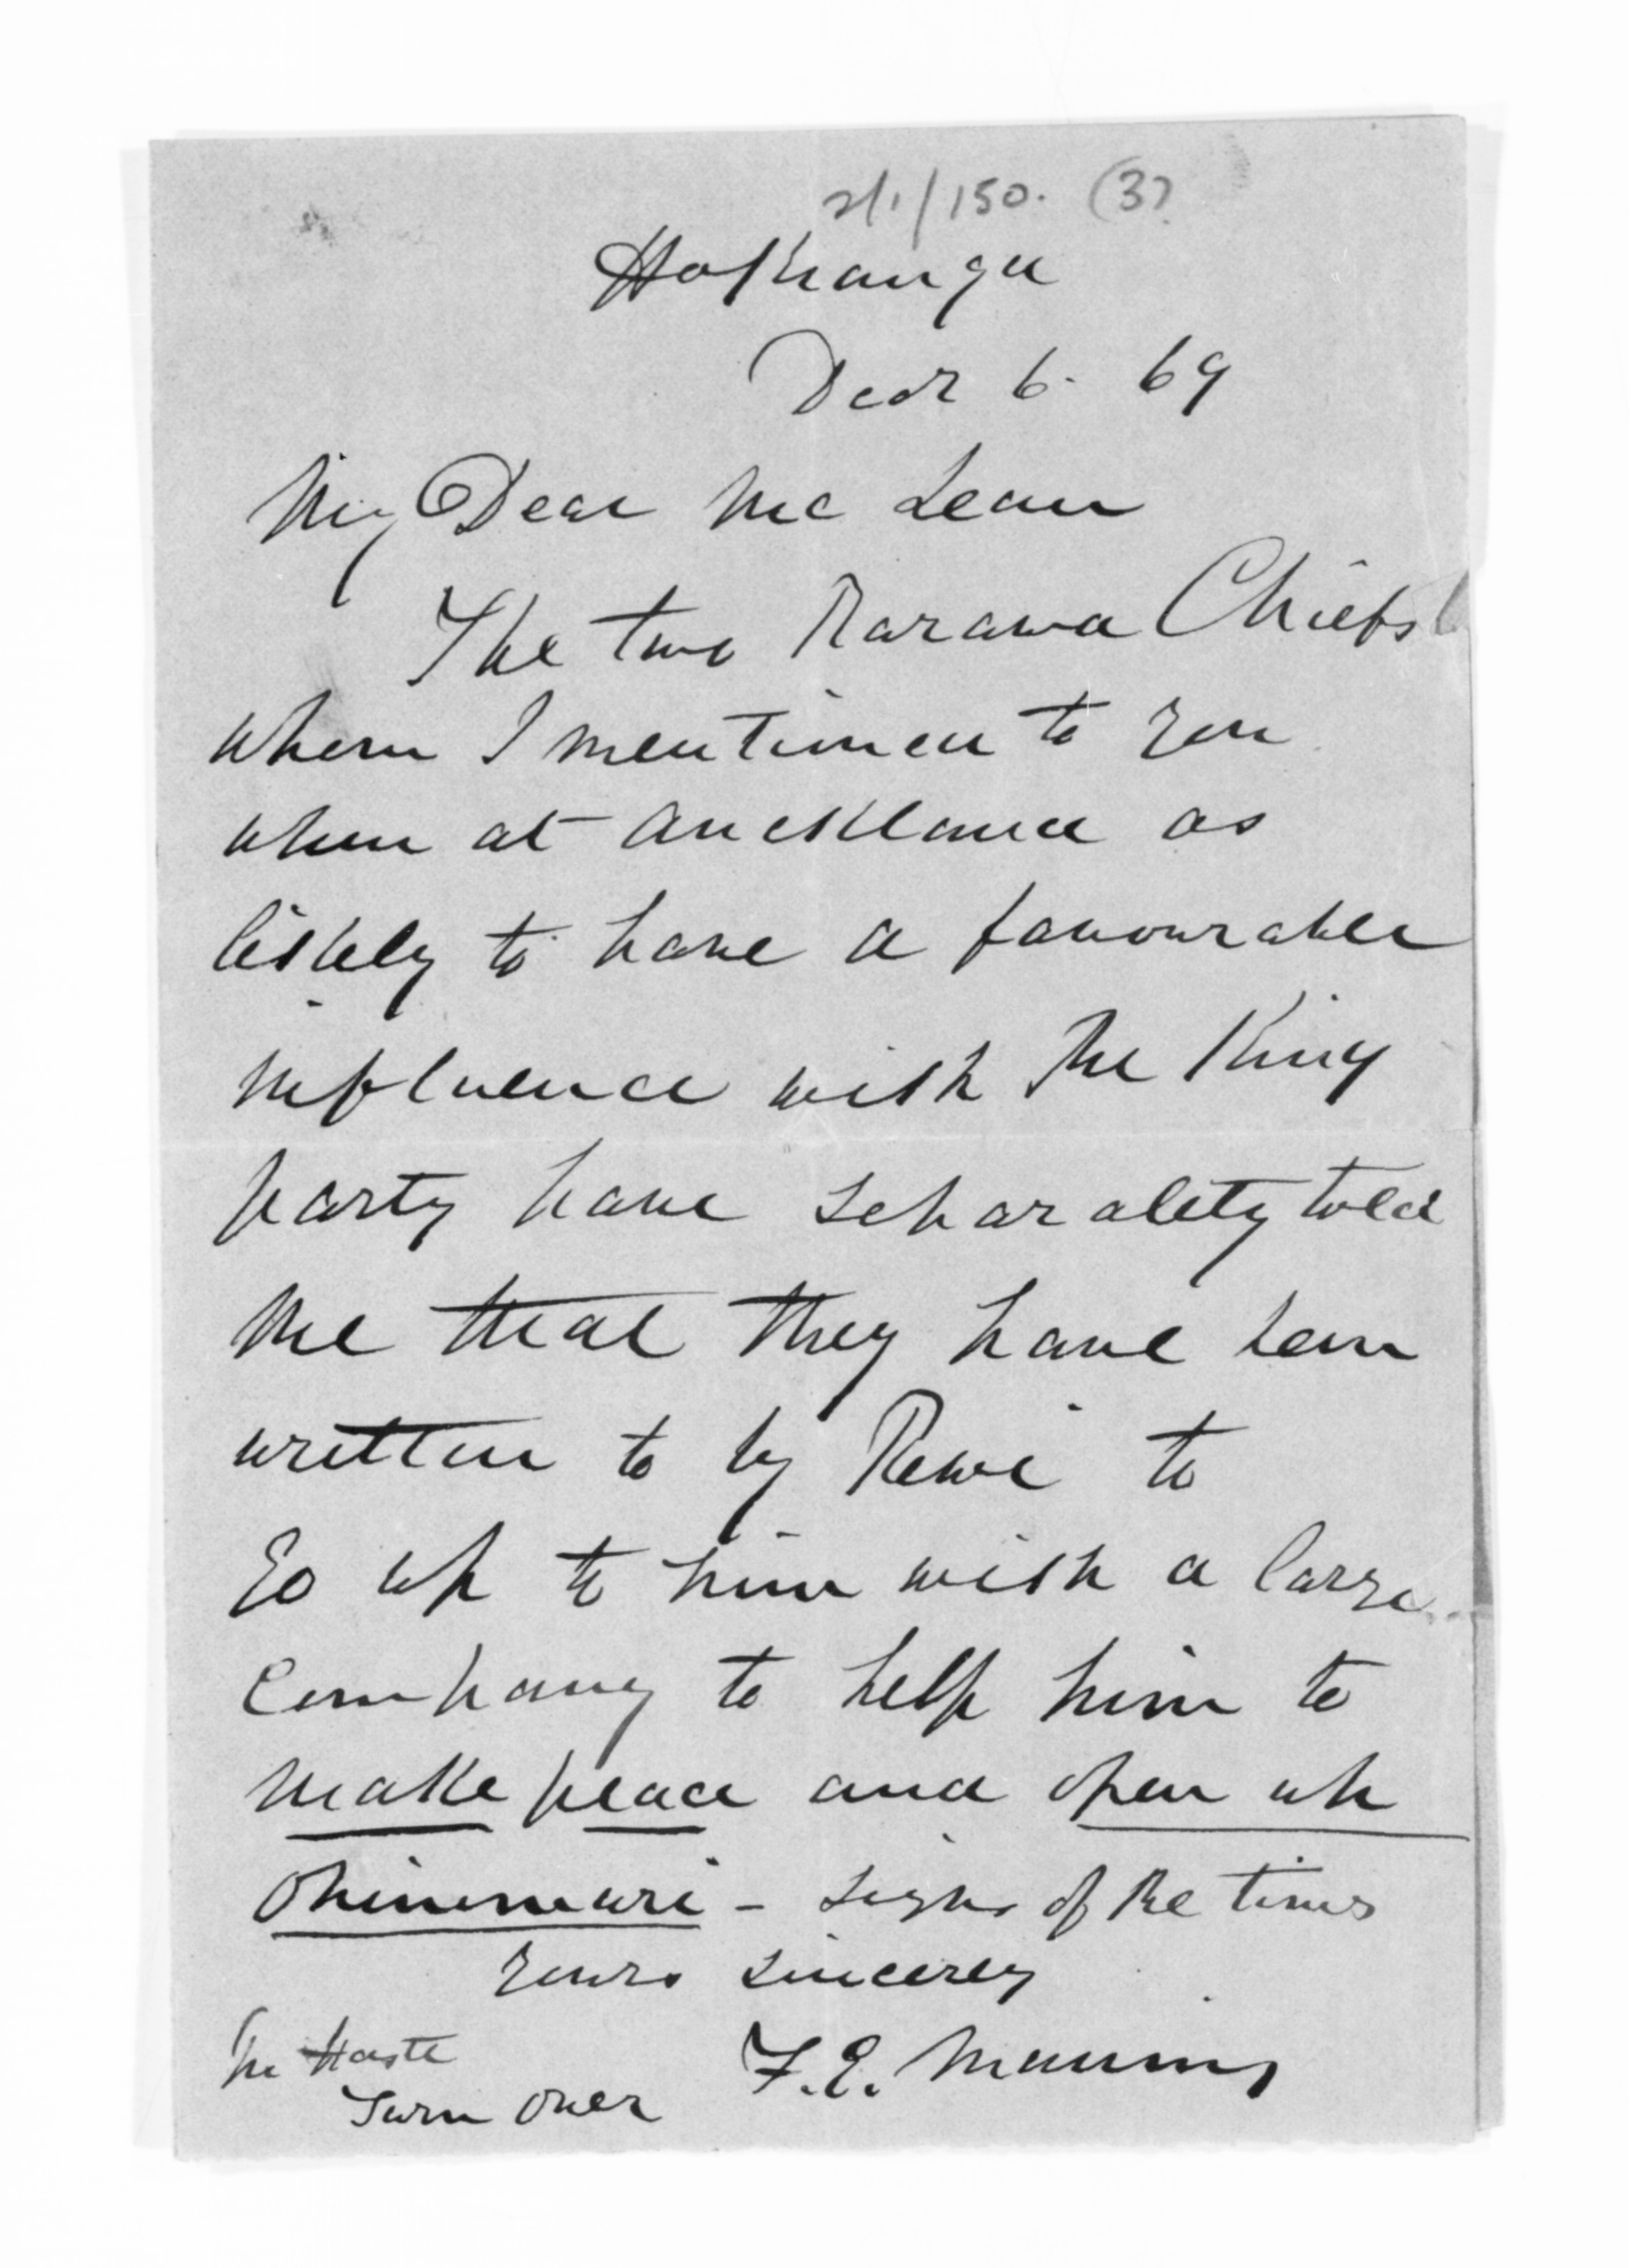 2/1/150. (3)
Hokianga
Decr 6. 69
My Dear Mc Lean
The two Rarawa Chiefs
whom I mentioned to you
when at auckland as
likely to have a favourable
influence with the King
party have separately told
me that they have been
written to by Rewi to
go up to him with a large
company to help him to
make peace and open up
Ohinemuri - signs of the times
yours sincerely
In Haste
F. E. Maning
Turn over